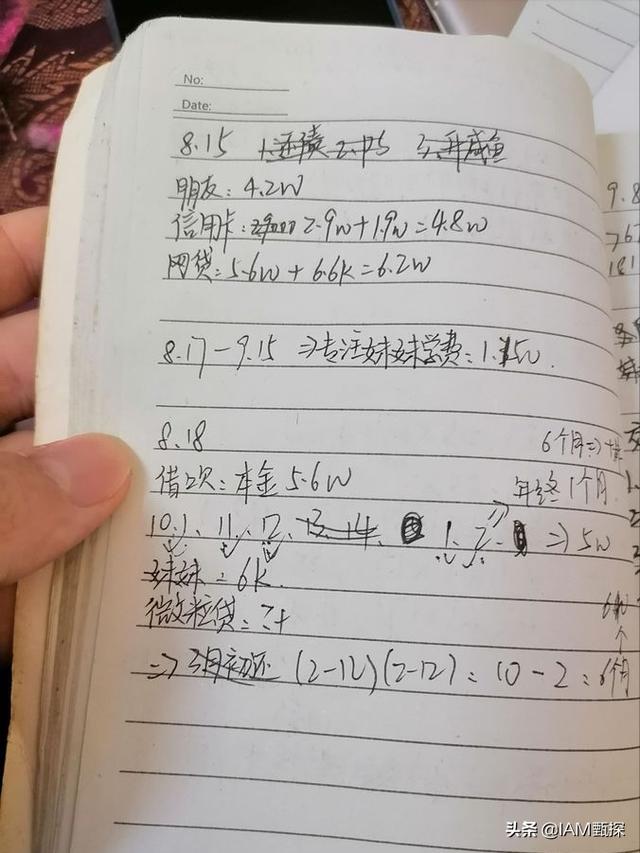 No:
Date:
8.15 1.还债 2. 3.弄咸鱼
朋友:4.2W
信用卡: 2.9W+1.9W=4.8W
网贷:5.6W+6.6K=6.2W
8.17-9.15 ⇒专注妹妹学费:1.5W.
8.18
6个月⇒
借次:本金5.6W
年终1个月
10.1、11、12、13、14、 1、2、 ⇒5W
妹妹:6K
微粒贷:
⇒3月初还 (2-12)(2-12)=10-2=6个月
9.8
头条 @IAM甄探